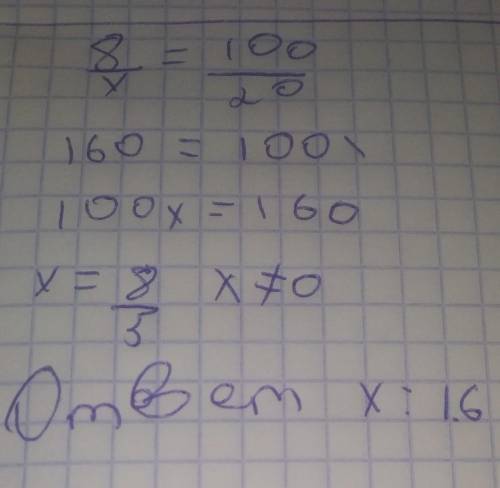 8/x = 100/20
160 = 100x
100x = 160
x = 8/5 x ≠ 0
Ответ x = 1.6